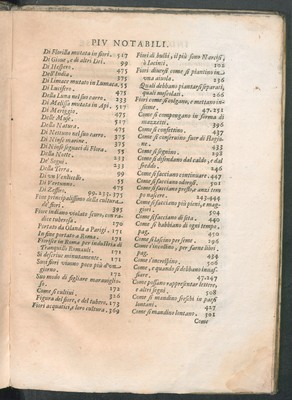 PIV NOTABILI.
Di Florilla mutata in fiori. 517
Di Gioue, e di altri Dei. 99
Di Hespero. 475
Dell'India. 375
Di Limace mutato in Lumaca. 55
Di Lucifero. 475
Della Luna nel suo carro. 233
Di Melissa mutata in Api. 517
Di Meriggio. 475
Delle Muse. 517
Della Natura. 517
Di Nettuno nel suo carro. 375
Di Ninfe marine. 375
Di Ninfe seguaci di Flora. 55
Della Notte. 233
De' Sogni. 233
Della Terra. 99
Di vn Vecchiello. 55
Di Vertunno. 475
Di Zefiro. 99. 233. 375
Fine principalissimo della cultura
de' fiori. 395
Fior indiano violato scuro, con radice
tuberosa. 170
Portato da Olanda a Parigi. 171
In fine portato a Roma. 171
Fiorisce in Roma per industria di
Tranquillo Romauli. 171
Si descriue minutamente. 171
Suoi fiori viuono poco più d'un
giorno. 172
Suo modo di sfogliare marauiglioso.
172
Come si cultiui. 326
Figura del fiore, e del tubero. 173
Fiori acquatici, e loro cultura. 369
Fiori di bulbi, il più sono Narcisi,
ò Iacinti. 108
Fiori diuersi come si piantino in
vna aiuola. 236
Quali debbano piantarsi separati,
quali mescolati. 265
Fiori come si colgano, e mettano insieme.
47. 251
Come si compongano in forma di
mazzetti. 396
Come si confettino. 437
Come si conseruino fuor di stagione.
433
Come si seguino. 298
Come si difendano dal caldo, e dal
freddo. 246
Come si facciano continuare. 447
Come si facciano odorosi. 501
Come si facciano presto, e anzi tempo
nascere. 243. 445
Come si facciano più pieni, e maggiori.
504
Come si facciano di seta. 440
Come si habbiano di ogni tempo.
pag. 434
Come si lascino per seme. 296
Come s'incidano, per farne libri.
pag. 439
Come s'incrocino. 506
Come, e quando si debbano inaffiare.
47. 247
Come possano rappresentar lettere,
e altri segni. 508
Come si mandino freschi in paesi
lontani. 427
Come si mandino lontani. 501
Come